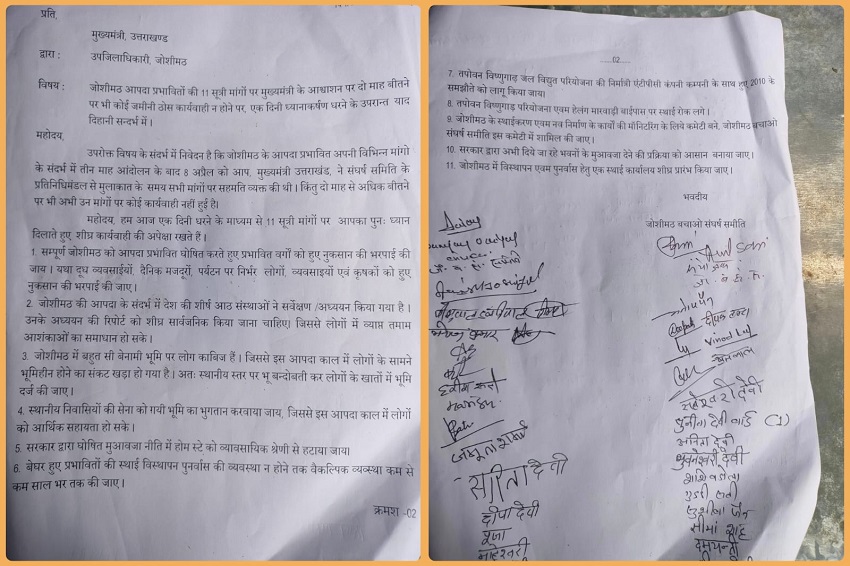 प्रति,
मुख्यमंत्री, उत्तराखण्ड
द्वारा : उपजिलाधिकारी, जोशीमठ
विषय : जोशीमठ आपदा प्रभावितों की 11 सूत्री मांगों पर मुख्यमंत्री के आश्वाशन पर दो माह बीतने
पर भी कोई जमीनी ठोस कार्यवाही न होने पर, एक दिनी ध्यानाकर्षण धरने के उपरान्त याद
दिहानी सन्दर्भ में।
महोदय,
उपरोक्त विषय के संदर्भ में निवेदन है कि जोशीमठ के आपदा प्रभावित अपनी विभिन्न मांगो
के संदर्भ में तीन माह आंदोलन के बाद 8 अप्रैल को आप, मुख्यमंत्री उत्तराखंड, ने संघर्ष समिति के
प्रतिनिधिमंडल से मुलाकात के समय सभी मांगों पर सहमति व्यक्त की थी। किंतु दो माह से अधिक बीतने
पर भी अभी उन मांगों पर कोई कार्यवाही नहीं हुई है।
महोदय, हम आज एक दिनी धरने के माध्यम से 11 सूत्री मांगों पर आपका पुनः ध्यान
दिलाते हुए, शीघ्र कार्यवाही की अपेक्षा रखते हैं।
1. सम्पूर्ण जोशीमठ को आपदा प्रभावित घोषित करते हुए प्रभावित वर्गों को हुए नुकसान की भरपाई की
जाय। यथा दूध व्यवसाईयों, दैनिक मजदूरों, पर्यटन पर निर्भर लोगों, व्यवसाइयों एवं कृषकों को हुए
नुकसान की भरपाई की जाए।
2. जोशीमठ की आपदा के संदर्भ में देश की शीर्ष आठ संस्थाओं ने सर्वेक्षण /अध्ययन किया गया है।
उनके अध्ययन की रिपोर्ट को शीघ्र सार्वजनिक किया जाना चाहिए। जिससे लोगों में व्याप्त तमाम
आशंकाओं का समाधान हो सके।
3. जोशीमठ में बहुत सी बेनामी भूमि पर लोग काबिज हैं। जिससे इस आपदा काल में लोगों के सामने
भूमिहीन होने का संकट खड़ा हो गया है। अतः स्थानीय स्तर पर भू बन्दोबती कर लोगों के खातों में भूमि
दर्ज की जाए।
4. स्थानीय निवासियों की सेना को गयी भूमि का भुगतान करवाया जाय, जिससे इस आपदा काल में लोगों
को आर्थिक सहायता हो सके।
5. सरकार द्वारा घोषित मुआवजा नीति में होम स्टे को व्यावसायिक श्रेणी से हटाया जाय।
6. बेघर हुए प्रभावितों की स्थाई विस्थापन पुनर्वास की व्यवस्था न होने तक वैकल्पिक व्यवस्था कम से
कम साल भर तक की जाए।
क्रमश -02
02
7. तपोवन विष्णुगाड़ जल विद्युत परियोजना की निर्मात्री एंटीपीसी कंपनी कम्पनी के साथ हुए 2010 के
समझौते को लागू किया जाय।
8. तपोवन विष्णुगाड़ परियोजना एवम हेलंग मारवाड़ी बाईपास पर स्थाई रोक लगे।
9. जोशीमठ के स्थाईकरण एवम नव निर्माण के कार्यो की मॉनिटरिंग के लिये कमेटी बने, जोशीमठ बचाओ
संघर्ष समिति इस कमेटी में शामिल की जाए।
10. सरकार द्वारा अभी दिये जा रहे भवनों के मुआवजा देने की प्रक्रिया को आसान बनाया जाए।
11. जोशीमठ में विस्थापन एवम पुनर्वास हेतु एक स्थाई कार्यालय शीघ्र प्रारंभ किया जाए।
भवदीय
जोशीमठ बचाओ संघर्ष समिति
Vinod Lal
सुनीता देवी वार्ड (1)
सरिता देवी
भुवनेश्वरी देवी
सरिता देवी
दीपा देवी
पूजा
माहेश्वरी
सीमा शाह
दमयन्ती